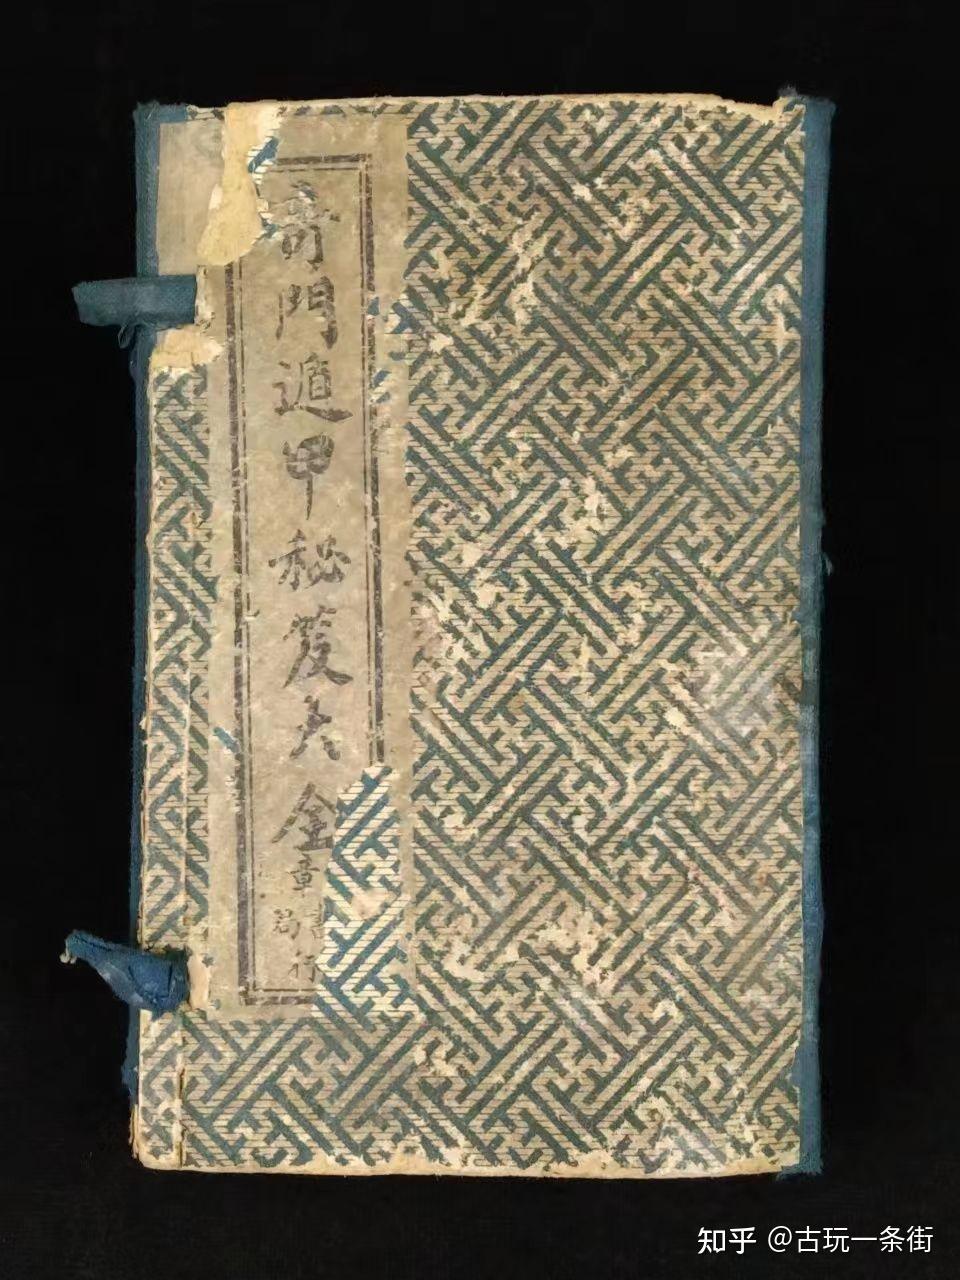 奇門遁甲秘笈大全
章
局
行
知乎 @古玩一条街